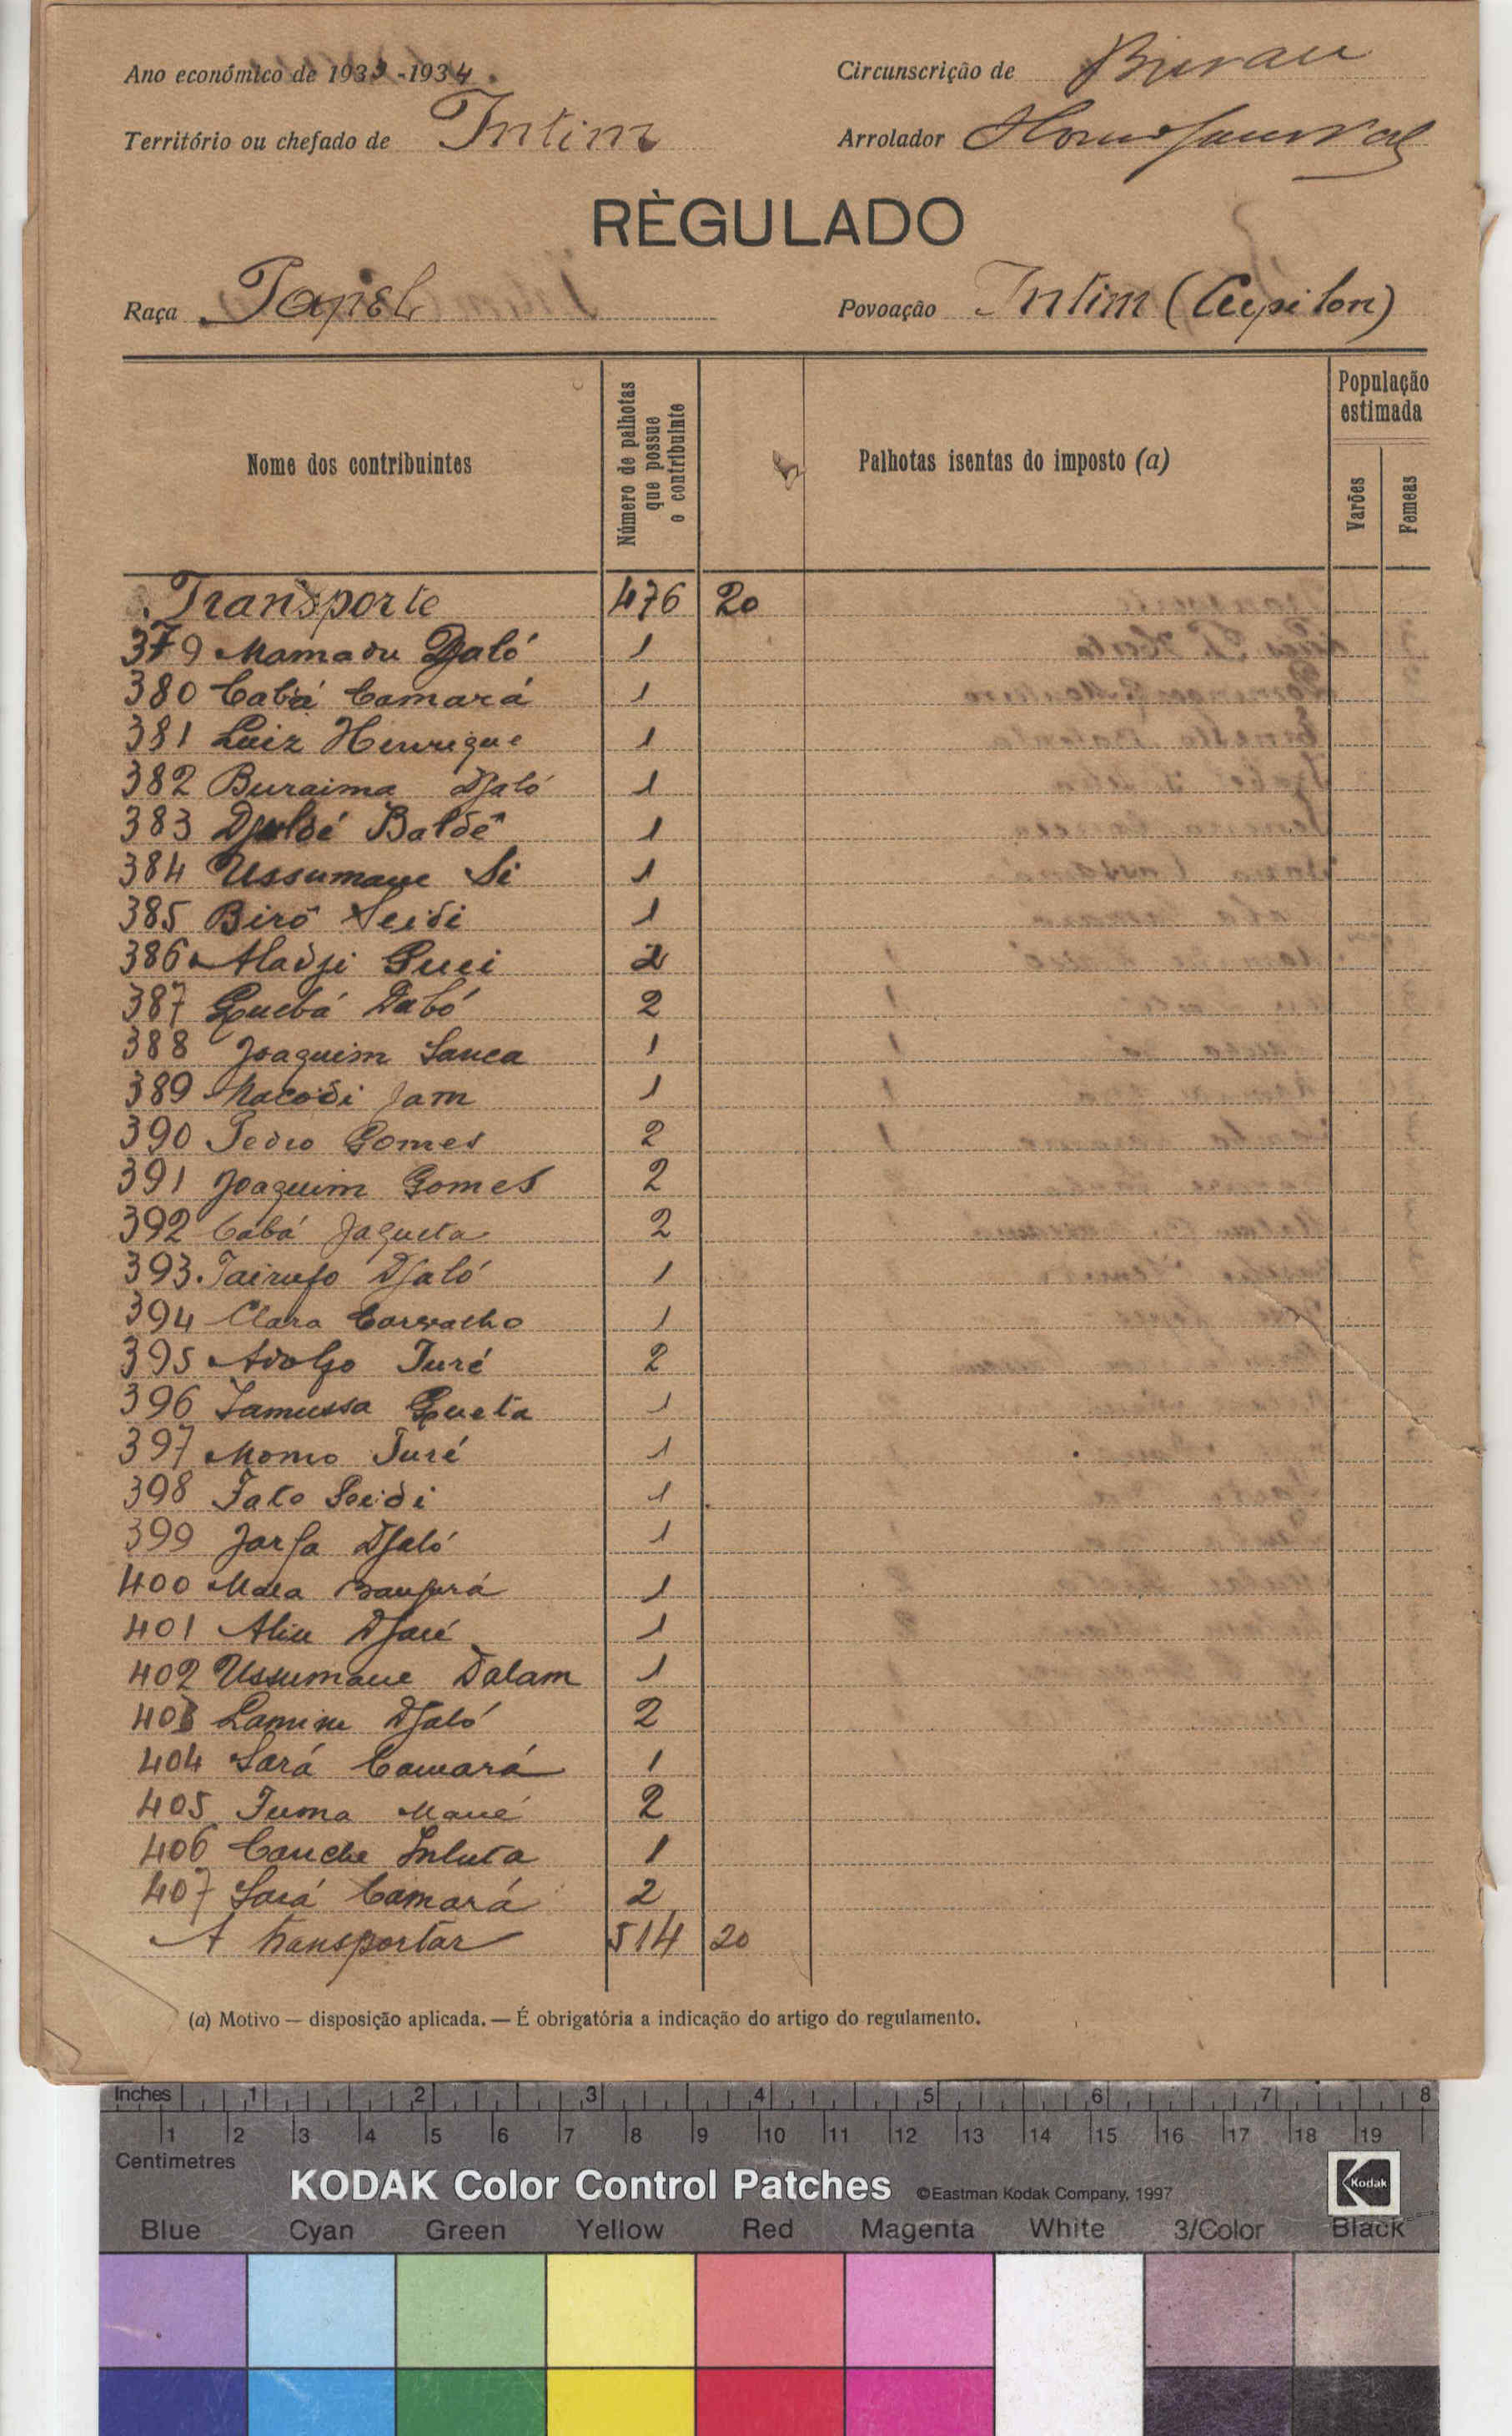 Ano económico de 1933-1934.
Circunscrição de Bissau
Território ou chefado de Intim
Arrolador
RÈGULADO
Raça Papel
Povoação Intim (Cupilon)
Nome dos contribuintes
Número de palhotas que possue o contribuinte
Palhotas isentas do imposto (a)
População estimada
Varões
Femeas
Transporte 476 20
379 Mamadu Djaló 1
380 Cabá Camará 1
381 Luiz Henrique 1
382 Buraima Djaló 1
383 Djuldé Baldé 1
384 Ussumane Si 1
385 Birô Seidi 1
386 Aladji 2
387 Quebá Dabó 2
388 Joaquim Sanca 1
389 Macodi Jam 1
390 Pedro Gomes 2
391 Joaquim Gomes 2
392 Cabá Jaqueta 2
393. Tairufo Djaló 1
394 Clara Carvalho 1
395 Adolfo Turé 2
396 Queta 1
397 Momo Turé 1
398 Seidi 1
399 Jarfa Djaló 1
400 1
401 Aliu 1
402 Ussumane Dalam 1
403 Lamine Djaló 2
404 Sará Camará 1
405 Mané 2
406 Cauche 1
407 Sará Camará 2
A transportar 514 20
(a) Motivo — disposição aplicada. — É obrigatória a indicação do artigo do regulamento.
Inches 1 2 3 4 5 6 7 8
1 2 3 4 5 6 7 8 9 10 11 12 13 14 15 16 17 18 19
Centimetres
KODAK Color Control Patches ©Eastman Kodak Company, 1997 Kodak
Blue Cyan Green Yellow Red Magenta White 3/Color Black